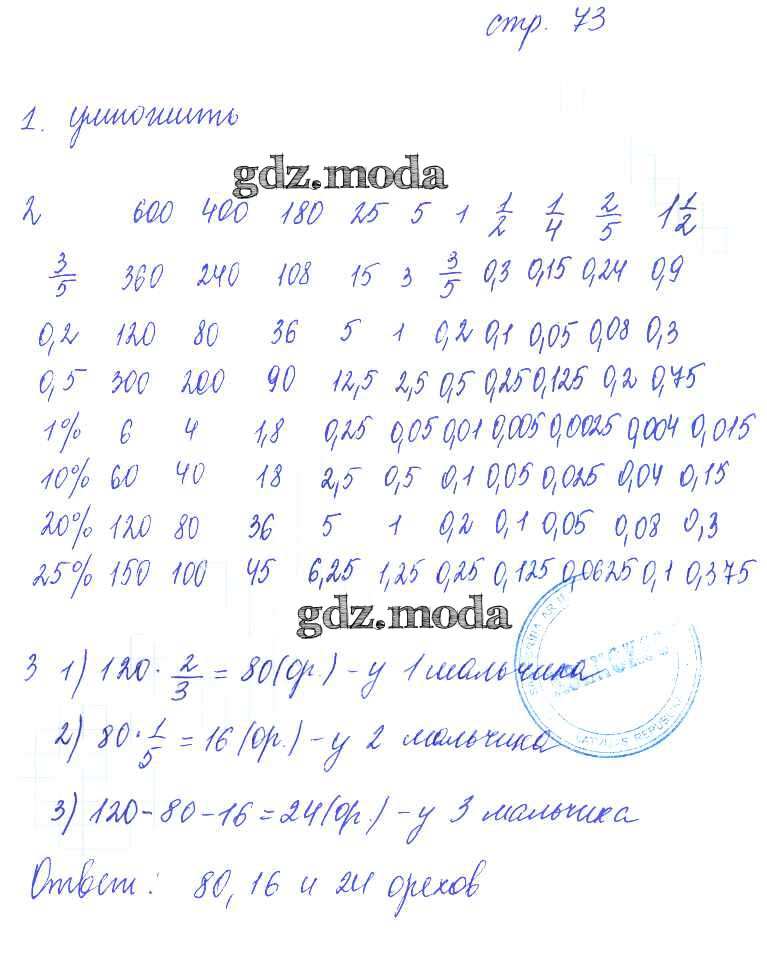 стр. 73
1. умножить
gdz.moda
2 600 400 180 25 5 1 1/2 1/4 2/5 1 1/2
3/5 360 240 108 15 3 3/5 0,3 0,15 0,24 0,9
0,2 120 80 36 5 1 0,2 0,1 0,05 0,08 0,3
0,5 300 200 90 12,5 2,5 0,5 0,25 0,125 0,2 0,75
1% 6 4 1,8 0,25 0,05 0,01 0,005 0,0025 0,004 0,015
10% 60 40 18 2,5 0,5 0,1 0,05 0,025 0,04 0,15
20% 120 80 36 5 1 0,2 0,1 0,05 0,08 0,3
25% 150 100 45 6,25 1,25 0,25 0,125 0,0625 0,1 0,375
gdz.moda
3 1) 120 · 2/3 = 80 (ор.) - у 1 мальчика
2) 80 · 1/5 = 16 (ор.) - у 2 мальчика
3) 120 - 80 - 16 = 24 (ор.) - у 3 мальчика
Ответ: 80, 16 и 24 орехов